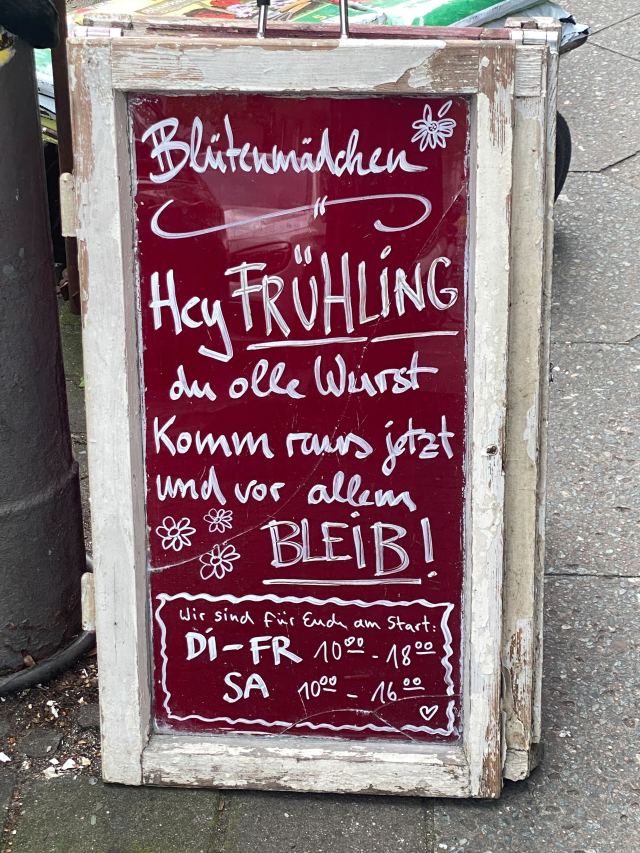 Blütenmädchen
Hey FRÜHLING
du olle Wurst
Komm raus jetzt
und vor allem
BLEIB!
Wir sind für Euch am Start:
Di-FR 10⁰⁰ - 18⁰⁰
SA 10⁰⁰ - 16⁰⁰